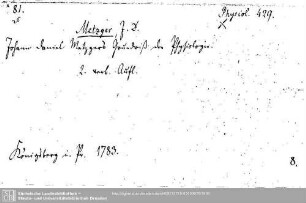 81.
Physiol. 429.
Metzger, J. D.
Johann Daniel Metzgers Grundriß der Physiologie
2. verb. Aufl.
Königsberg i. Pr. 1783.
8.
Sächsische Landesbibliothek -
Staats- und Universitätsbibliothek Dresden